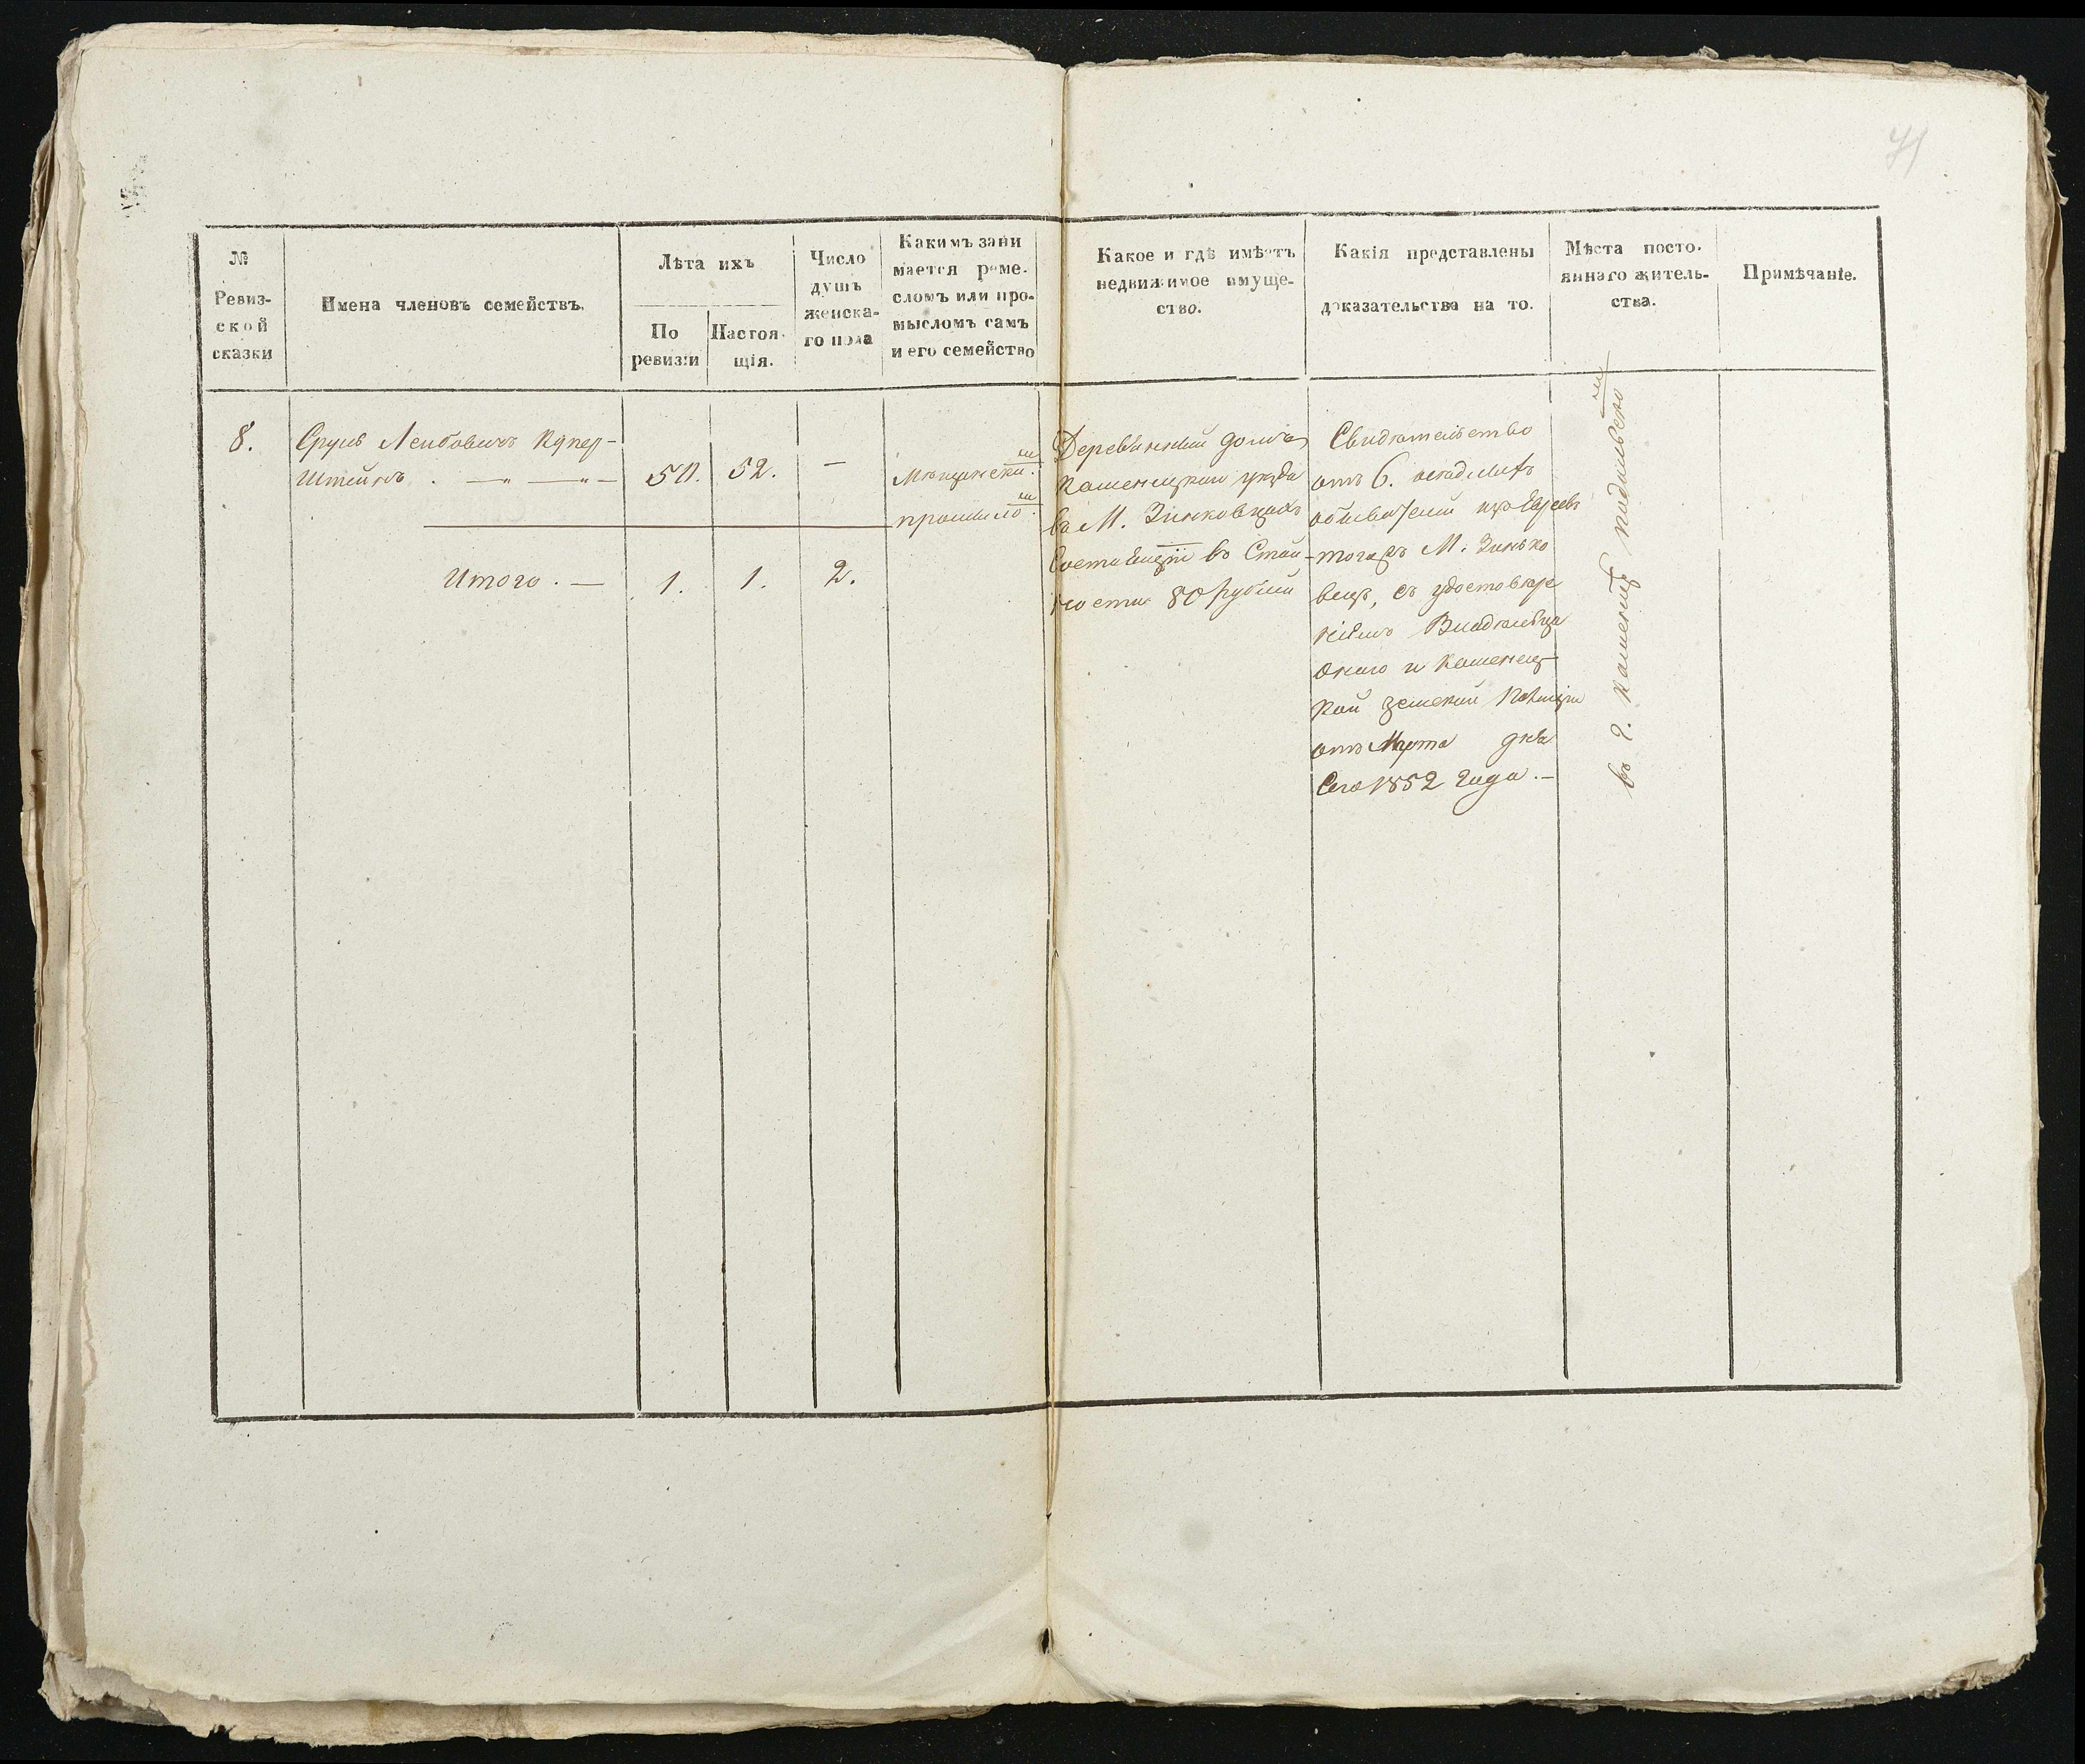 71
№
Ревиз-
ской
сказки
Имена членовъ семействъ.
Лѣта ихъ
По
ревизіи
Настоя-
щія.
Число
душъ
женска-
го пола
Какимъ зани
мается реме-
сломъ или про-
мысломъ самъ
и его семейство
Какое и гдѣ имѣетъ
недвижимое имуще-
ство.
Какія представлены
доказательства на то.
Мѣста посто-
яннаго житель-
ства.
Примѣчаніе.
8.
Сруль Лейбовичъ Купер-
Штейнъ . — " — " —
50.
52.
—
Мѣщански:ми
промысло:ми
Итого . —
1.
1.
2.
Деревянный домъ
Каменецкаго уѣзда
въ М. Зинковцахъ
Состоящій въ Стои-
мости 80 рублей
Свидѣтельство
отъ 6. осѣдлихъ
обывателей изъ Евреевъ
тогожъ М. Зинько
вецъ, съ удостовѣре
ніемъ Владѣльца
оного и Каменец-
кой земской Полиціи
отъ Марта дня
Сего 1852 года . —
въ г. Каменцѣ Подольско:мъ